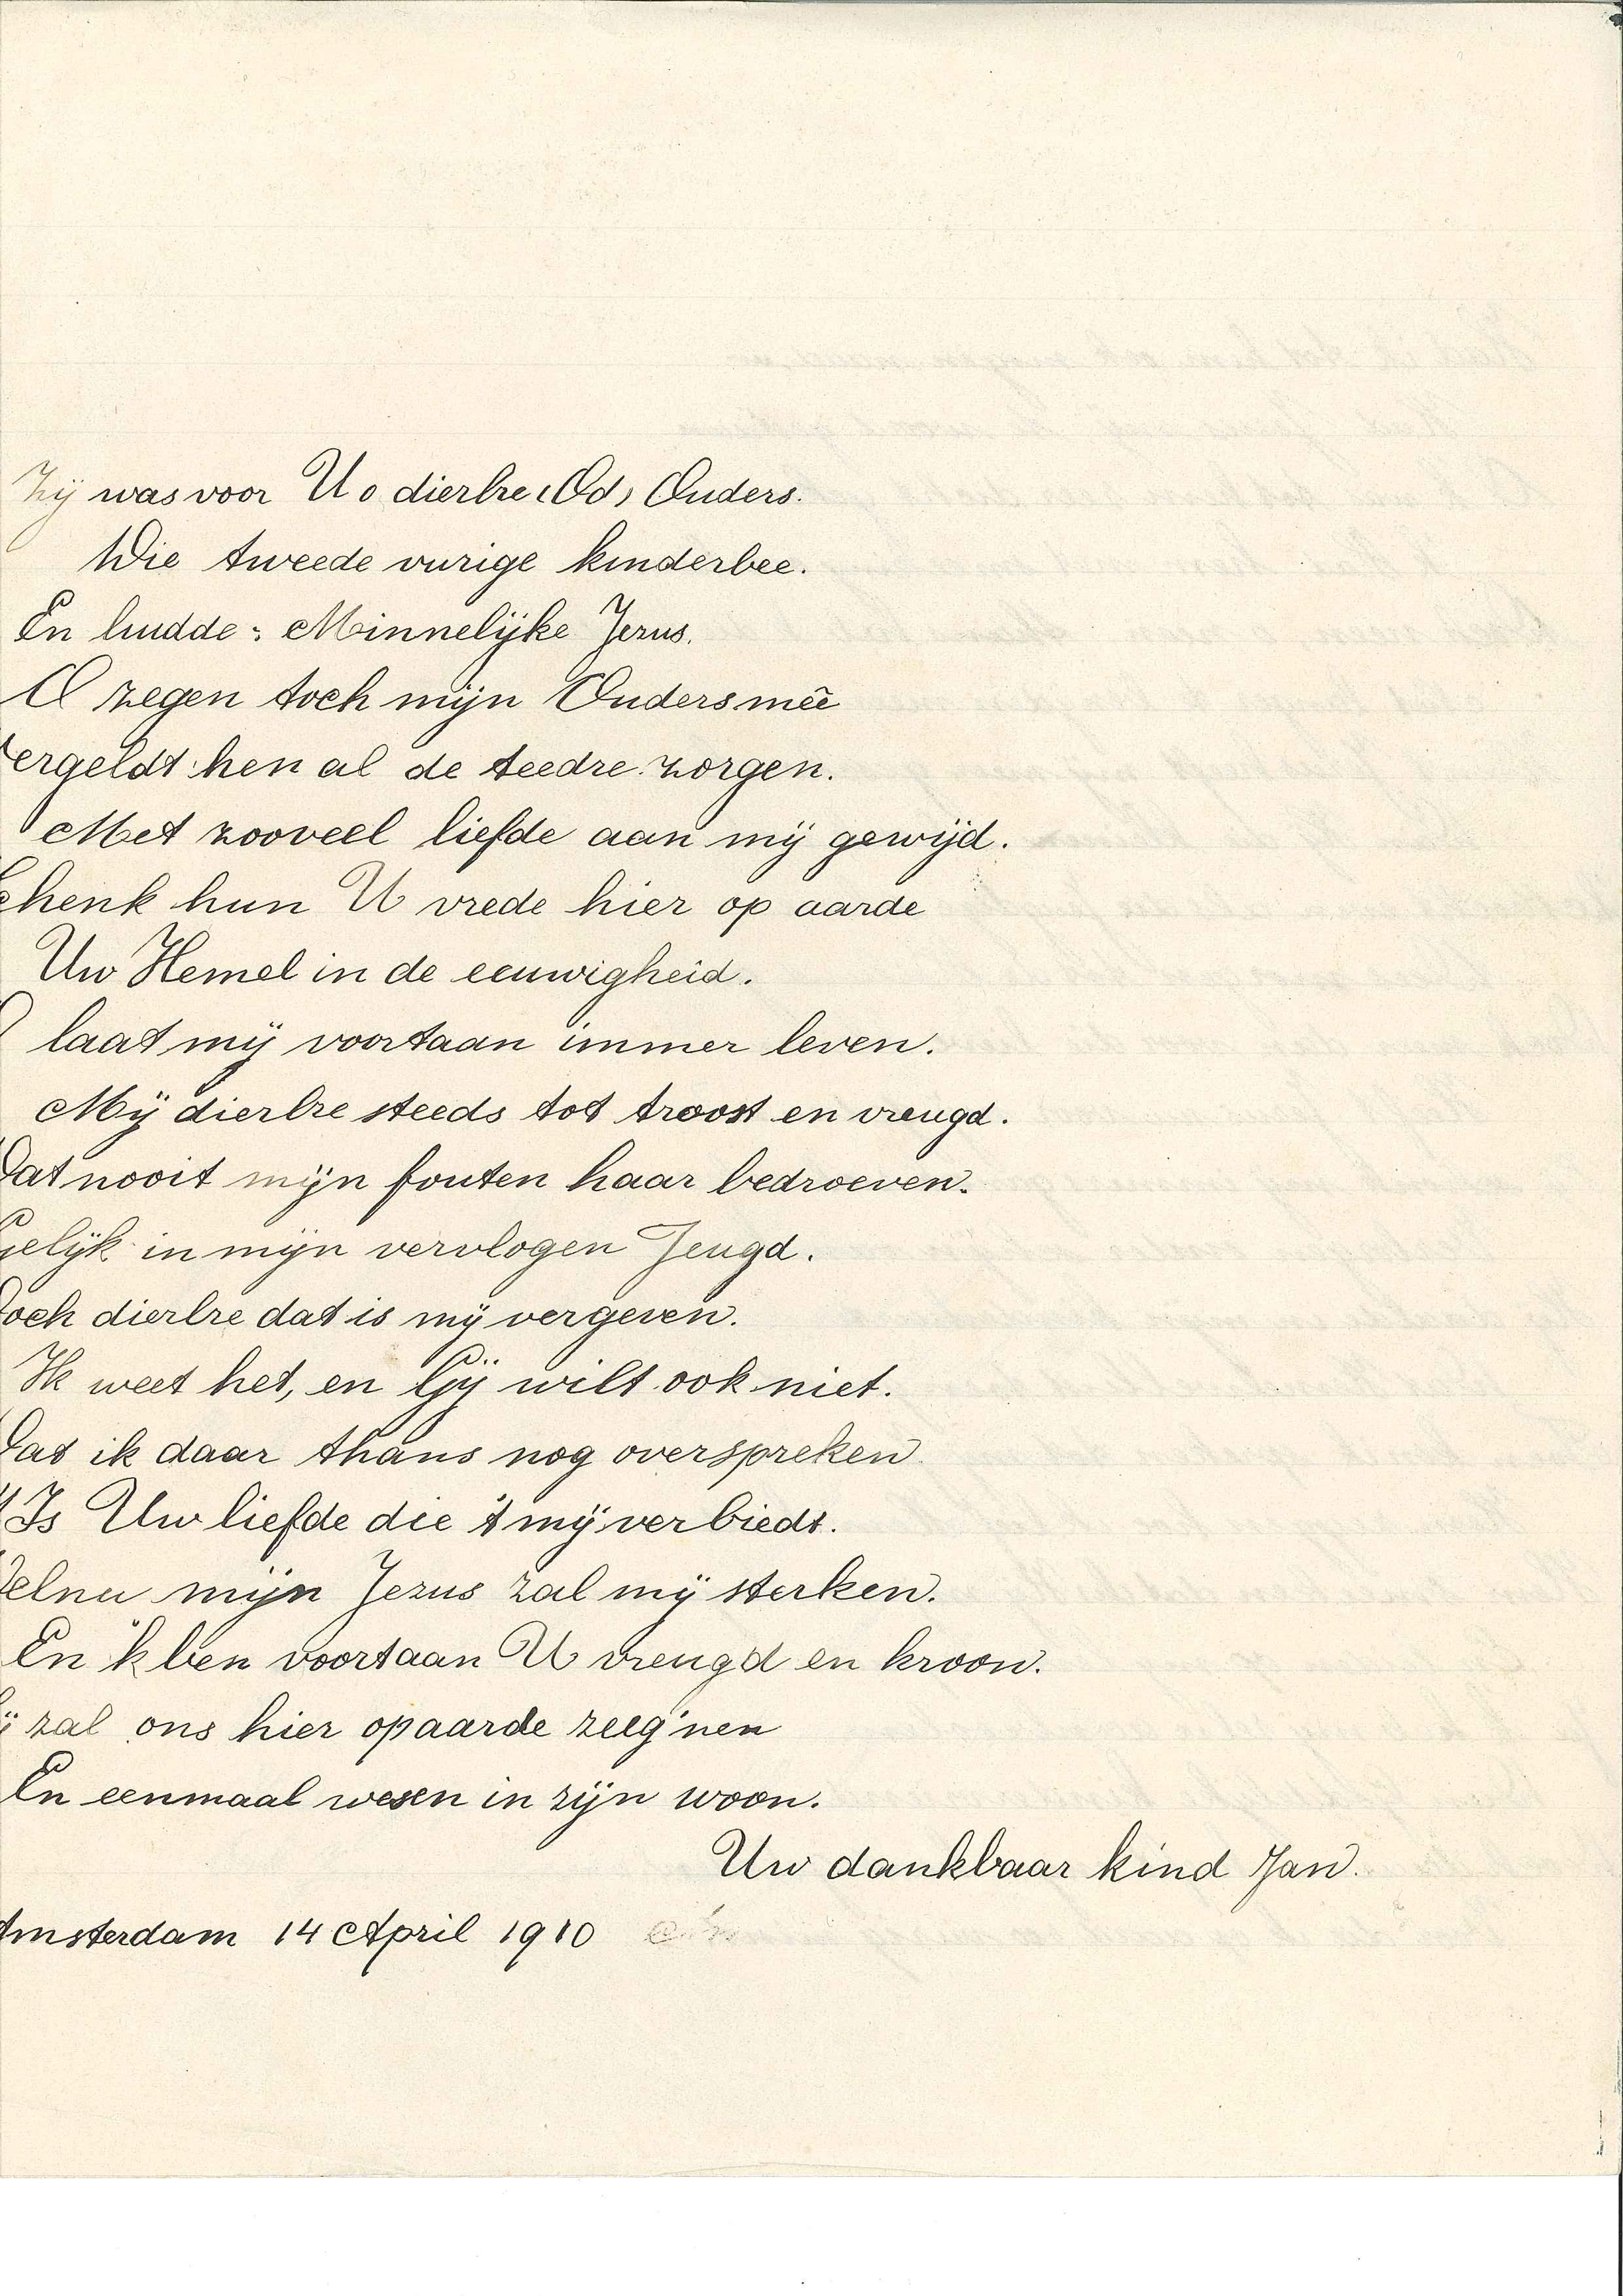 Zij was voor U o dierbre (Od) Ouders.
Die tweede vurige kinderbee.
En luidde: Minnelijke Jezus.
O zegen toch mijn Ouders meê
Vergeldt hen al de teedre zorgen.
Met zooveel liefde aan mij gewijd.
Schenk hun U vrede hier op aarde
Uw Hemel in de eeuwigheid.
O laat mij voortaan immer leven.
Mij dierbre steeds tot troost en vreugd.
Dat nooit mijn fouten haar bedroeven.
Gelijk in mijn vervlogen Jeugd.
Doch dierbre dat is mij vergeven.
Ik weet het, en Gij wilt ook niet.
Dat ik daar thans nog overspreken
't Is Uw liefde die 't mij verbiedt.
Welnu mijn Jezus zal mij sterken.
En 'k ben voortaan U vreugd en kroon.
Hij zal ons hier op aarde zeeg'nen
En eenmaal wesen in zijn woon.
Uw dankbaar kind Jan.
Amsterdam 14 April 1910